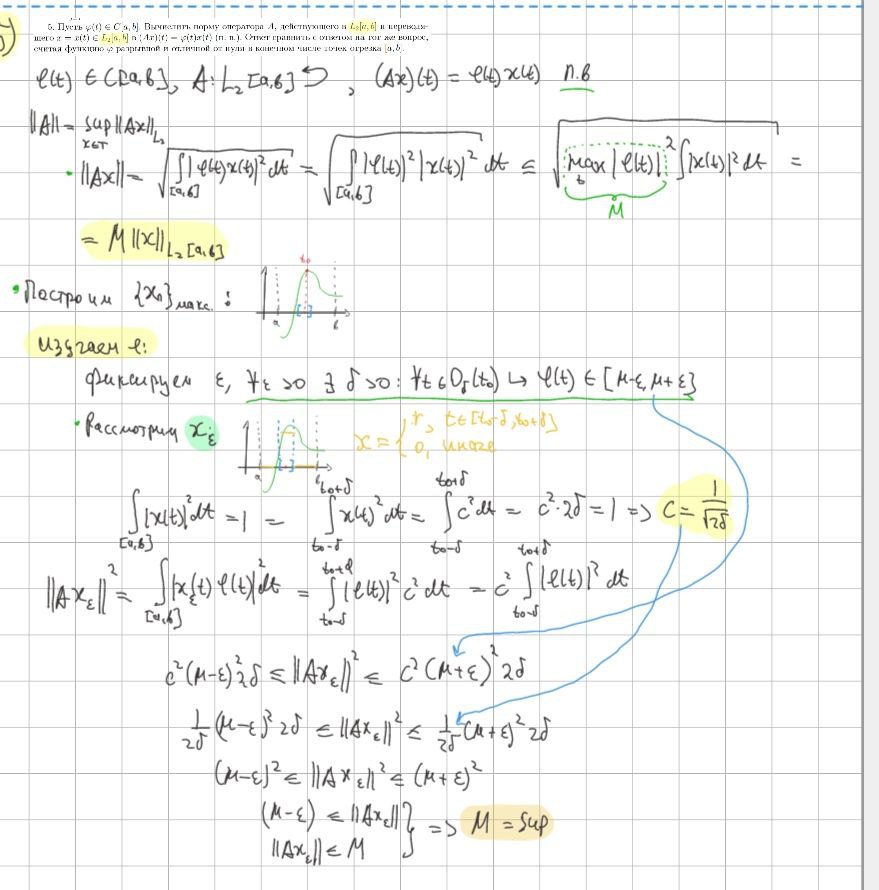 5. Пусть φ(t) ∈ C[a, b]. Вычислить норму оператора A, действующего в L₂[a, b] и переводя-
щего x = x(t) ∈ L₂[a, b] в (Ax)(t) = φ(t)x(t) (п. в.). Ответ сравнить с ответом на тот же вопрос,
считая функцию φ разрывной и отличной от нуля в конечном числе точек отрезка [a, b].
φ(t) ∈ C[a,b], A: L₂[a,b]↩, (Ax)(t) = φ(t) x(t) п.в
||A|| = sup ||Ax||_L₂
• ||Ax|| = √∫_[a,b] |φ(t)x(t)|² dt = √∫_[a,b] |φ(t)|² |x(t)|² dt ≤ √max_t |φ(t)|² ∫|x(t)|² dt =
M
= M ||x||_L₂[a,b]
• Построим {xₙ}макс. :
t₀
a b
Изучаем φ:
фиксируем ε, ∀ε>0 ∃ δ>0: ∀t∈O_δ(t₀) ↪ φ(t) ∈ [M-ε, M+ε]
• Рассмотрим x_ε
a b
x = { r, t∈[t₀-δ, t₀+δ]
0, иначе
∫_[a,b] |x(t)|² dt = 1 = ∫_{t₀-δ}^{t₀+δ} x(t)² dt = ∫_{t₀-δ}^{t₀+δ} c² dt = c²·2δ = 1 => C = 1/√2δ
||Ax_ε||² = ∫_[a,b] |x_ε(t) φ(t)|² dt = ∫_{t₀-δ}^{t₀+δ} |φ(t)|² c² dt = c² ∫_{t₀-δ}^{t₀+δ} |φ(t)|² dt
c²(M-ε)² 2δ ≤ ||Ax_ε||² ≤ c² (M+ε)² 2δ
1/2δ (M-ε)² 2δ ≤ ||Ax_ε||² ≤ 1/2δ (M+ε)² 2δ
(M-ε)² ≤ ||Ax_ε||² ≤ (M+ε)²
(M-ε) ≤ ||Ax_ε|| } => M = sup
||Ax_ε|| ≤ M